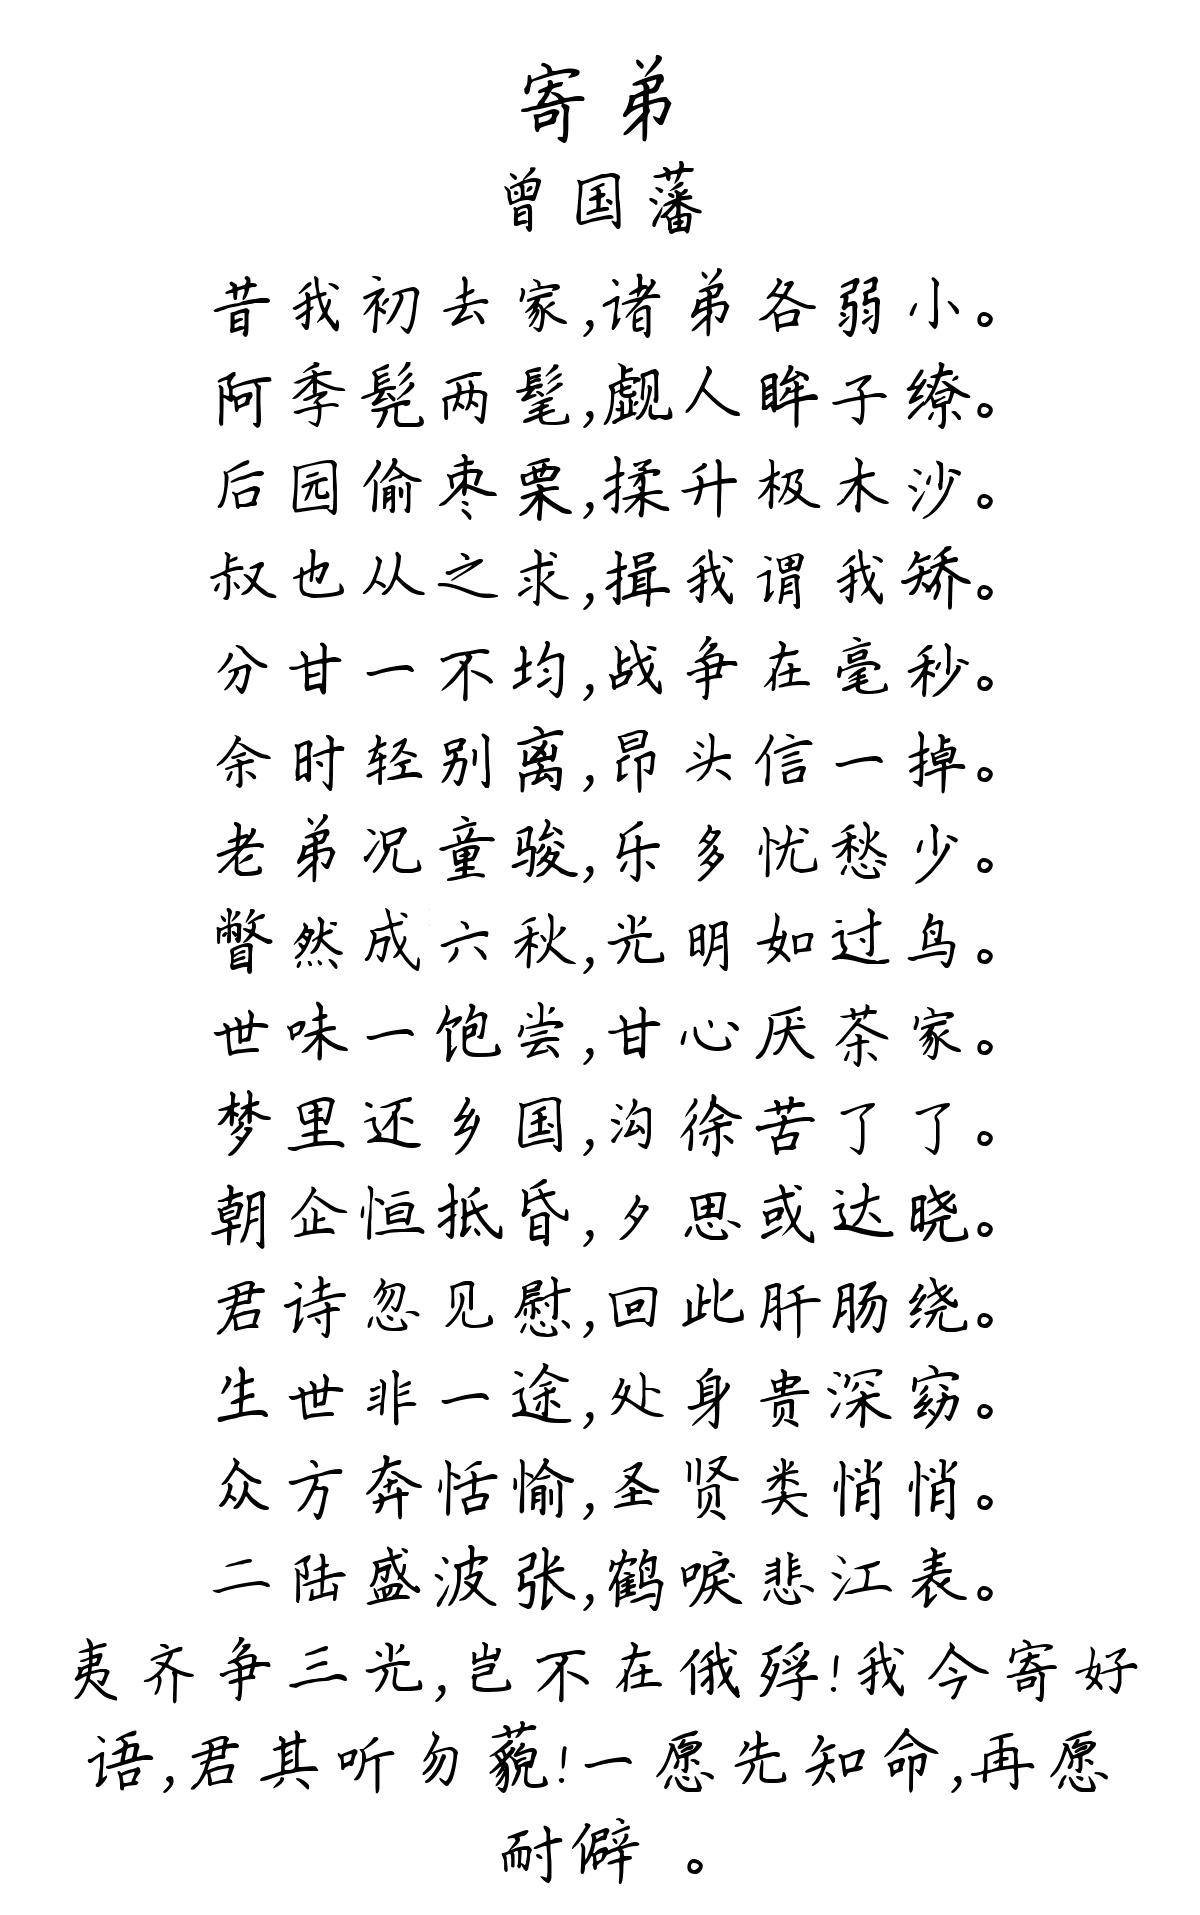 寄弟
曾国藩
昔我初去家,诸弟各弱小。
阿季髡两髦,觑人眸子缭。
后园偷枣栗,揉升极木沙。
叔也从之求,揖我谓我矫。
分甘一不均,战争在毫秒。
余时轻别离,昂头信一掉。
老弟况童骏,乐多忧愁少。
瞥然成六秋,光明如过鸟。
世味一饱尝,甘心厌茶家。
梦里还乡国,沟徐苦了了。
朝企恒抵昏,夕思或达晓。
君诗忽见慰,回此肝肠绕。
生世非一途,处身贵深窈。
众方奔恬愉,圣贤类悄悄。
二陆盛波张,鹤唳悲江表。
夷齐争三光,岂不在俄殍!我今寄好
语,君其听勿藐!一愿先知命,再愿
耐僻 。